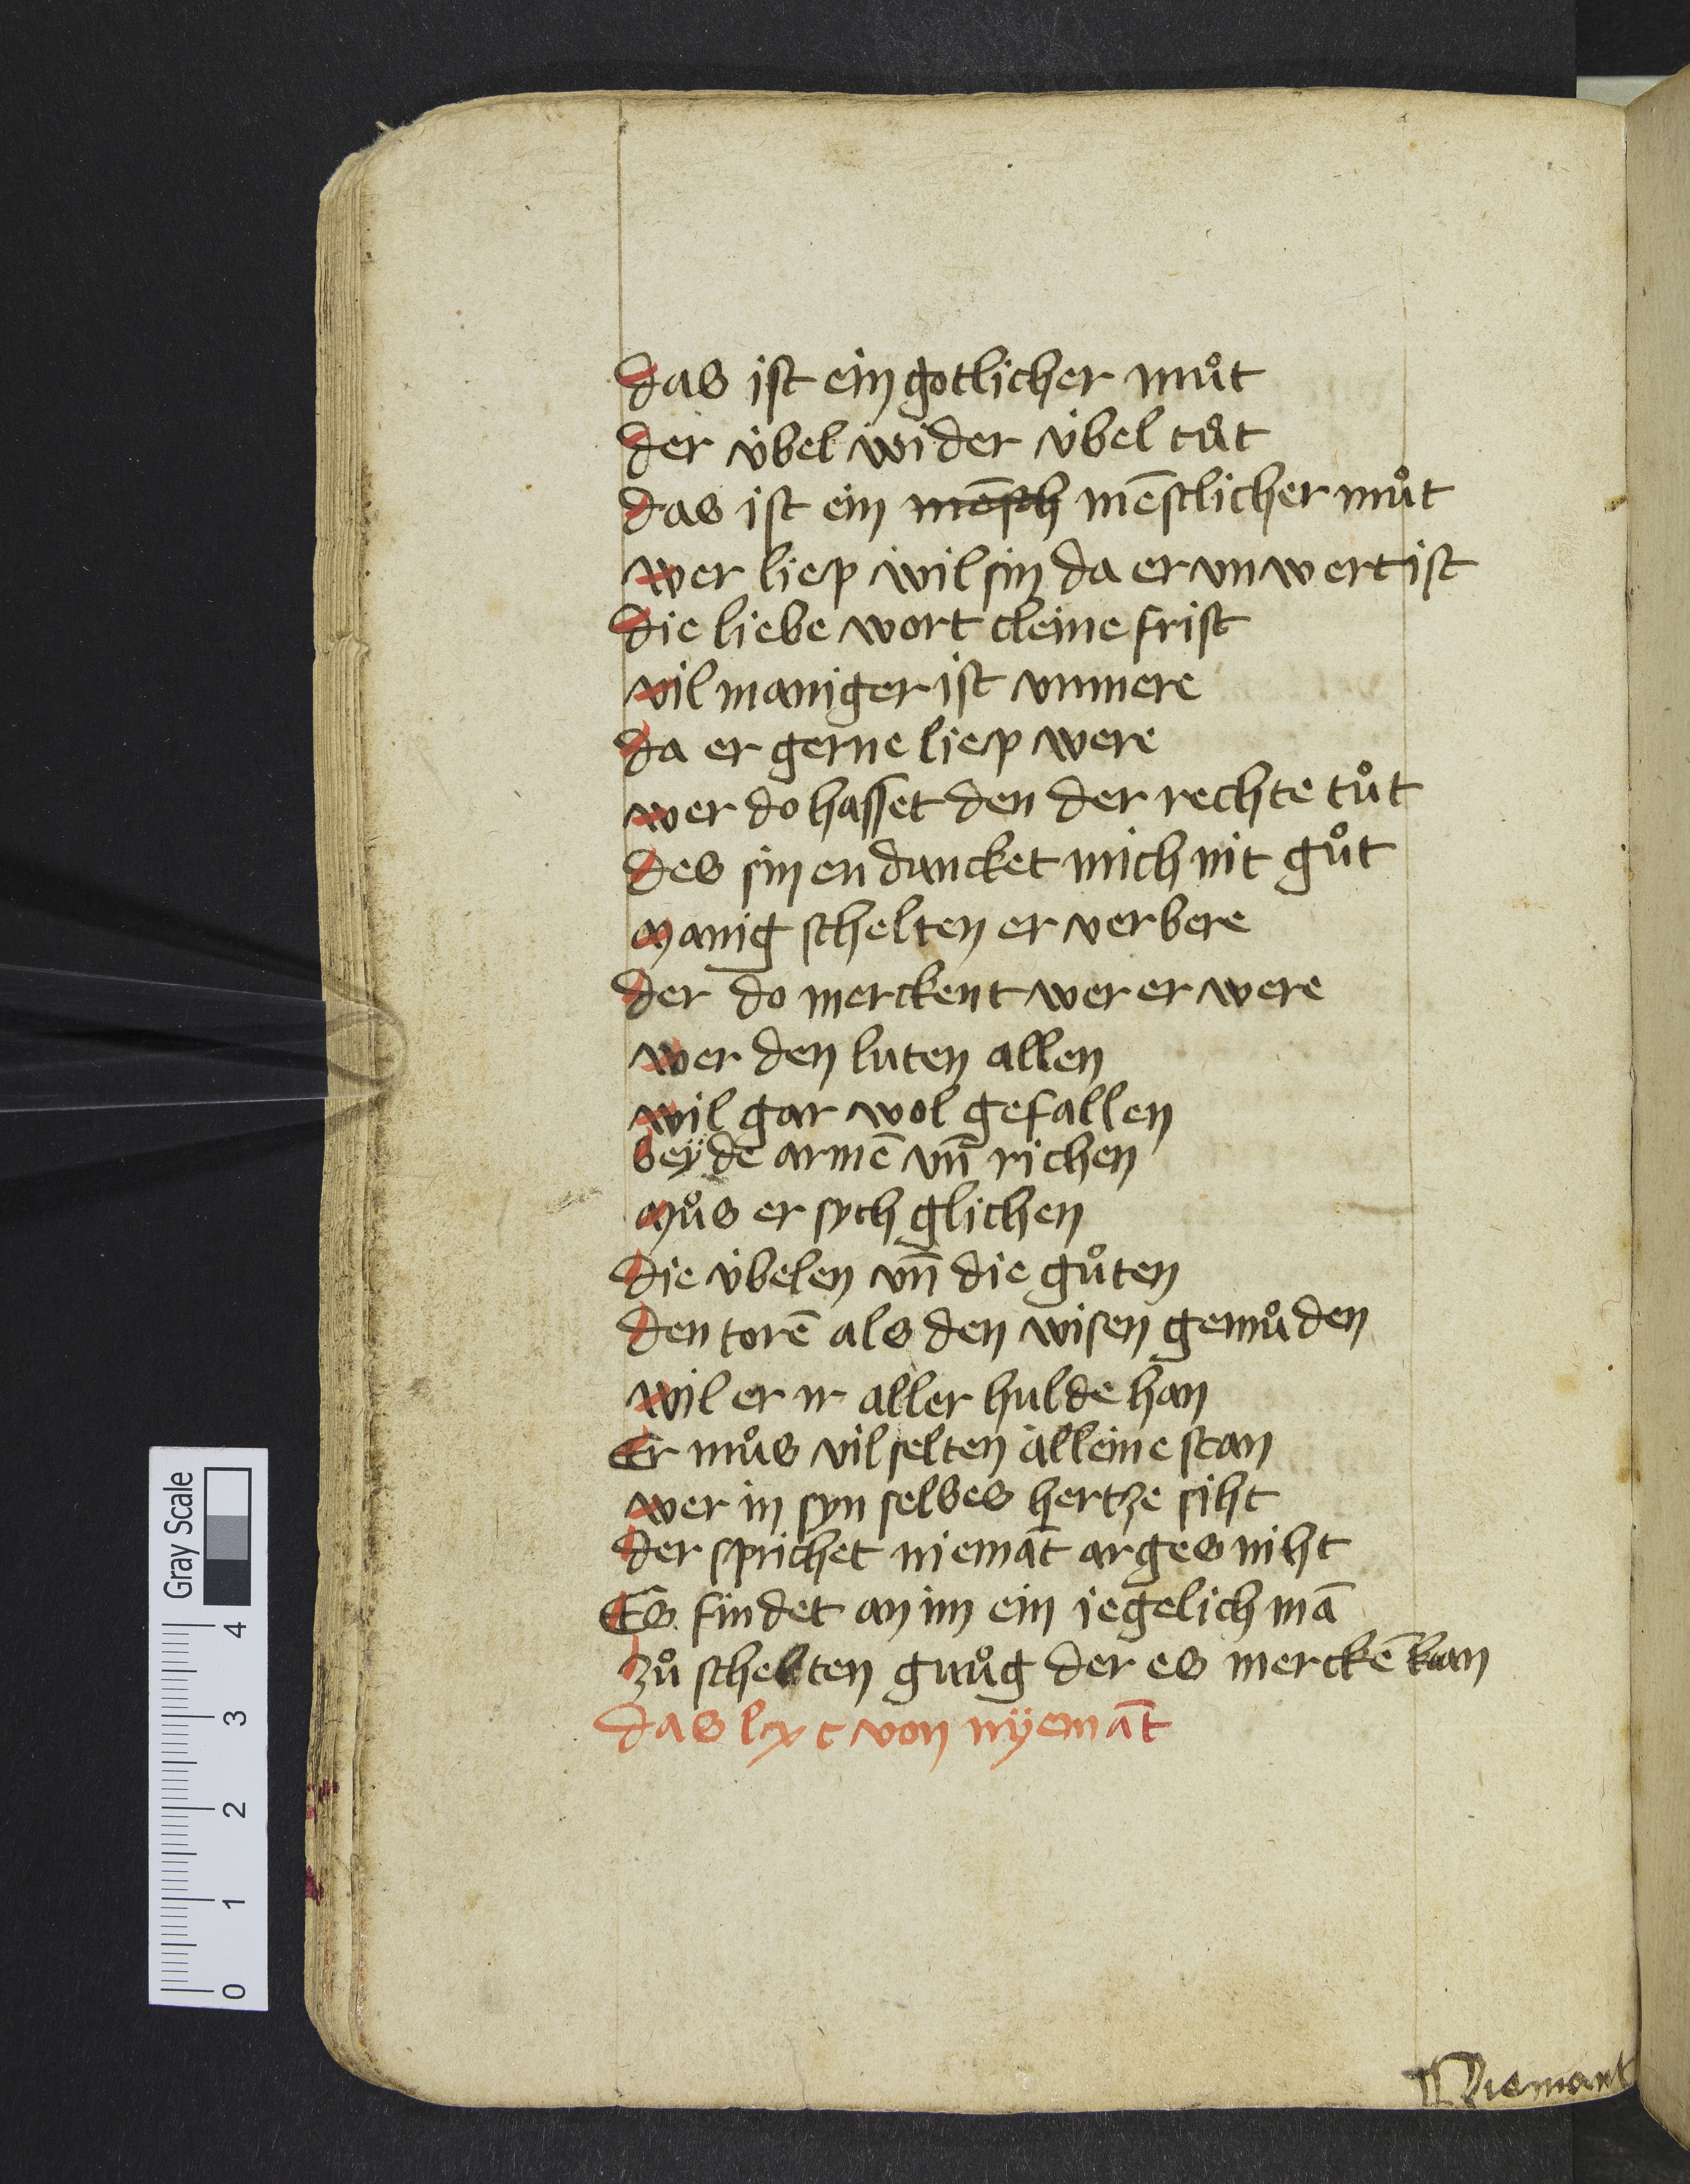 das ist ein gotlicher muͦt
der v̈bel wider v̈bel tuͦt
das ist ein mēsch mēstlicher muͦt
wer liep wil sin da er vnwert ist
die liebe wort cleine frist
vil maniger ist vnmere
da er gerne liep were
wer do hasset den der rechte tuͦt
des sin en duncket mich nit guͦt
manig schelten er verbere
der do merckent wer er were
wer den luten allen
wil gar wol gefallen
beÿde armē vn̄ richen
muͦs er sych glichen
die v̈belen vn̄ die guͦten
den torē als den wisen gemuͦden
wil er ir aller hulde han
Er muͦs vil selten alleine stan
wer in syn selbes hertze siht
der sprichet niemāt arges niht
Es findet an im ein iegelich mā
zuͦ schelten gnuͦg der es merckē kan
das lxc von nÿemāt
Niemant
Gray Scale
0 1 2 3 4